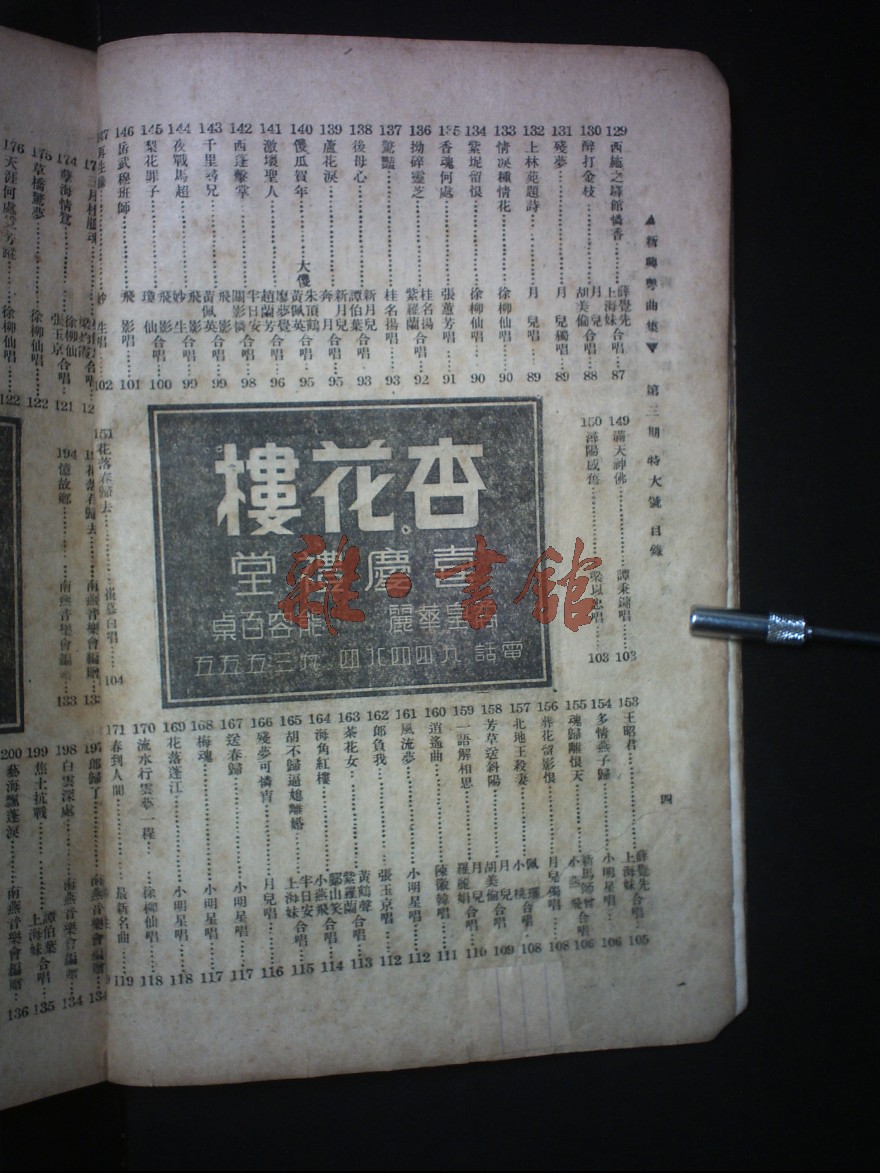 ▲新時粵曲集▼ 第三期特大號目錄
四
129 西施之驛館憐香 薛覺先 上海妹 合唱 87
130 醉打金枝 月兒 胡美倫 合唱 88
131 殘夢 月兒獨唱 89
132 上林苑題詩 月兒唱 89
133 情淚種情花 徐柳仙唱 90
134 紫坭留恨 徐柳仙唱 90
135 香魂何處 張蕙芳唱 91
136 拗碎靈芝 桂名揚 紫羅蘭 合唱 92
137 驚豔 桂名揚唱 93
138 後母心 新月兒 譚伯葉 合唱 93
139 蘆花淚 新月兒 奔月 合唱 95
140 傻瓜賀年 大傻 朱頂鶴 黃佩英 合唱 95
141 激壞聖人 廖夢覺 趙蘭芳 合唱 96
142 西蓬擊掌 關影憐 半日安 合唱 98
143 千里尋兄 飛影 黃佩英 合唱 99
144 夜戰馬超 飛影 妙生 合唱 99
145 梨花罪子 飛影 瓊仙 合唱 100
146 岳武穆班師 飛影唱 101
147 妙生唱 102
149 滿天神佛 譚秉鏞唱 103
150 潯陽感舊 梁以忠唱 103
杏花樓
喜慶禮堂
華麗 能容百桌
電話 九四四九四 九三五五五
151 花落春歸去 張慕白唱 104
153 王昭君 薛覺先 上海妹 合唱 105
154 多情燕子歸 小明星唱 106
155 魂歸離恨天 新馬師曾 小燕飛 合唱 106
156 葬花留影恨 月兒獨唱 108
157 北地王殺妻 佩瓊 小桃 合唱 108
158 芳草送斜陽 月兒 胡美倫 合唱 109
159 一語解相思 月兒 羅麗娟 合唱 110
160 逍遙曲 陳徽韓唱 111
161 風流夢 小明星唱 112
162 郎負我 張玉京唱 112
163 茶花女 黃鶴聲 紫羅蘭 合唱 113
164 海角紅樓 鄺山笑 小燕飛 合唱 114
165 胡不歸逼媳離婚 半日安 上海妹 合唱 115
166 殘夢可憐宵 月兒唱 116
167 送春歸 小明星唱 117
168 梅魂 小明星唱 117
169 花落蓬江 小明星唱 118
170 流水行雲夢一程 徐柳仙唱 118
171 春到人間 最新名曲 119
174 孽海情鴛 徐柳仙 張玉京 合唱 121
175 草橋驚夢 徐柳仙唱 122
176 天涯何處覓芳蹤 徐柳仙唱 122
南燕音樂會編贈 133
194 憶故鄉 南燕音樂會編贈 133
197 郎歸了 南燕音樂會編贈 134
198 白雲深處 南燕音樂會編贈 134
199 焦土抗戰 譚伯葉 上海妹 合唱 135
200 藝海飄蓬淚 南燕音樂會編贈 136
雜·書館